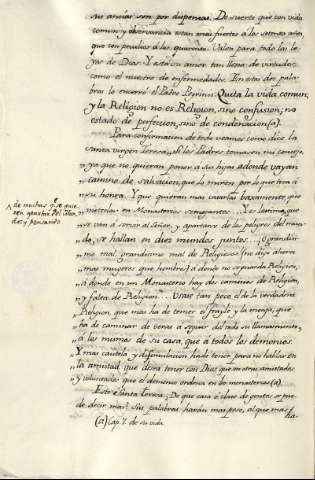 su amar son por dispensar. De suerte que con vida
comun y observancia estan mas fuertes a los setenta años,
que con pecados a los quarenta. Valen para todo las le-
yes de Dios. Y esta su amor tan llena de virtudes,
como el nuestro de enfermedades. En estas dos pala-
bras lo encerró el Padre Perrin: Quita la vida comun,
y la Religion no es Religion, sino confusion; no
estado de perfeccion, sino de condenacion (a).
Para confirmacion de todo veamos como dice la
santa virgen Teresa: Si los Padres tomasen mi consejo,
ya que no quieran poner a sus hijas adonde vayan
camino de salvacion, que lo miren por lo que toca á
su honra. Y que quieran mas casarlas bajamente, que
meterlas en Monasterios semejantes. Y es lastima, que
de muchas q.e se quie-
ren apartar del Mun-
do; y pensando
se van a servir al Señor, y apartarse de los peligros del mun-
do, se hallan en diez mundos juntos... O grandisi-
mo mal, grandisimo mal de Religiosos (no digo ahora
mas mugeres que hombres) a donde no se guarda Religion,
a donde en un Monasterio hay dos caminos de Religion,
y falta de Religion... Usase tan poco el de la verdadera
Religion, que mas ha de temer el frayle y la monja, que
ha de comenzar de veras a seguir del todo su llamamiento,
a los mismos de su casa, que á todos los demonios.
Y mas cautela y disimulacion ha de tener para no hablar en
la amistad que desea tener con Dios, que en otras amistades
y voluntades que el demonio ordena en los monasterios (a).
Esto es Santa Teresa. De que cara ó clase de gentes se pue-
de decir mas? Sus palabras harán mas peso, al que mas
ha-
(a) Cap. 7. de su vida